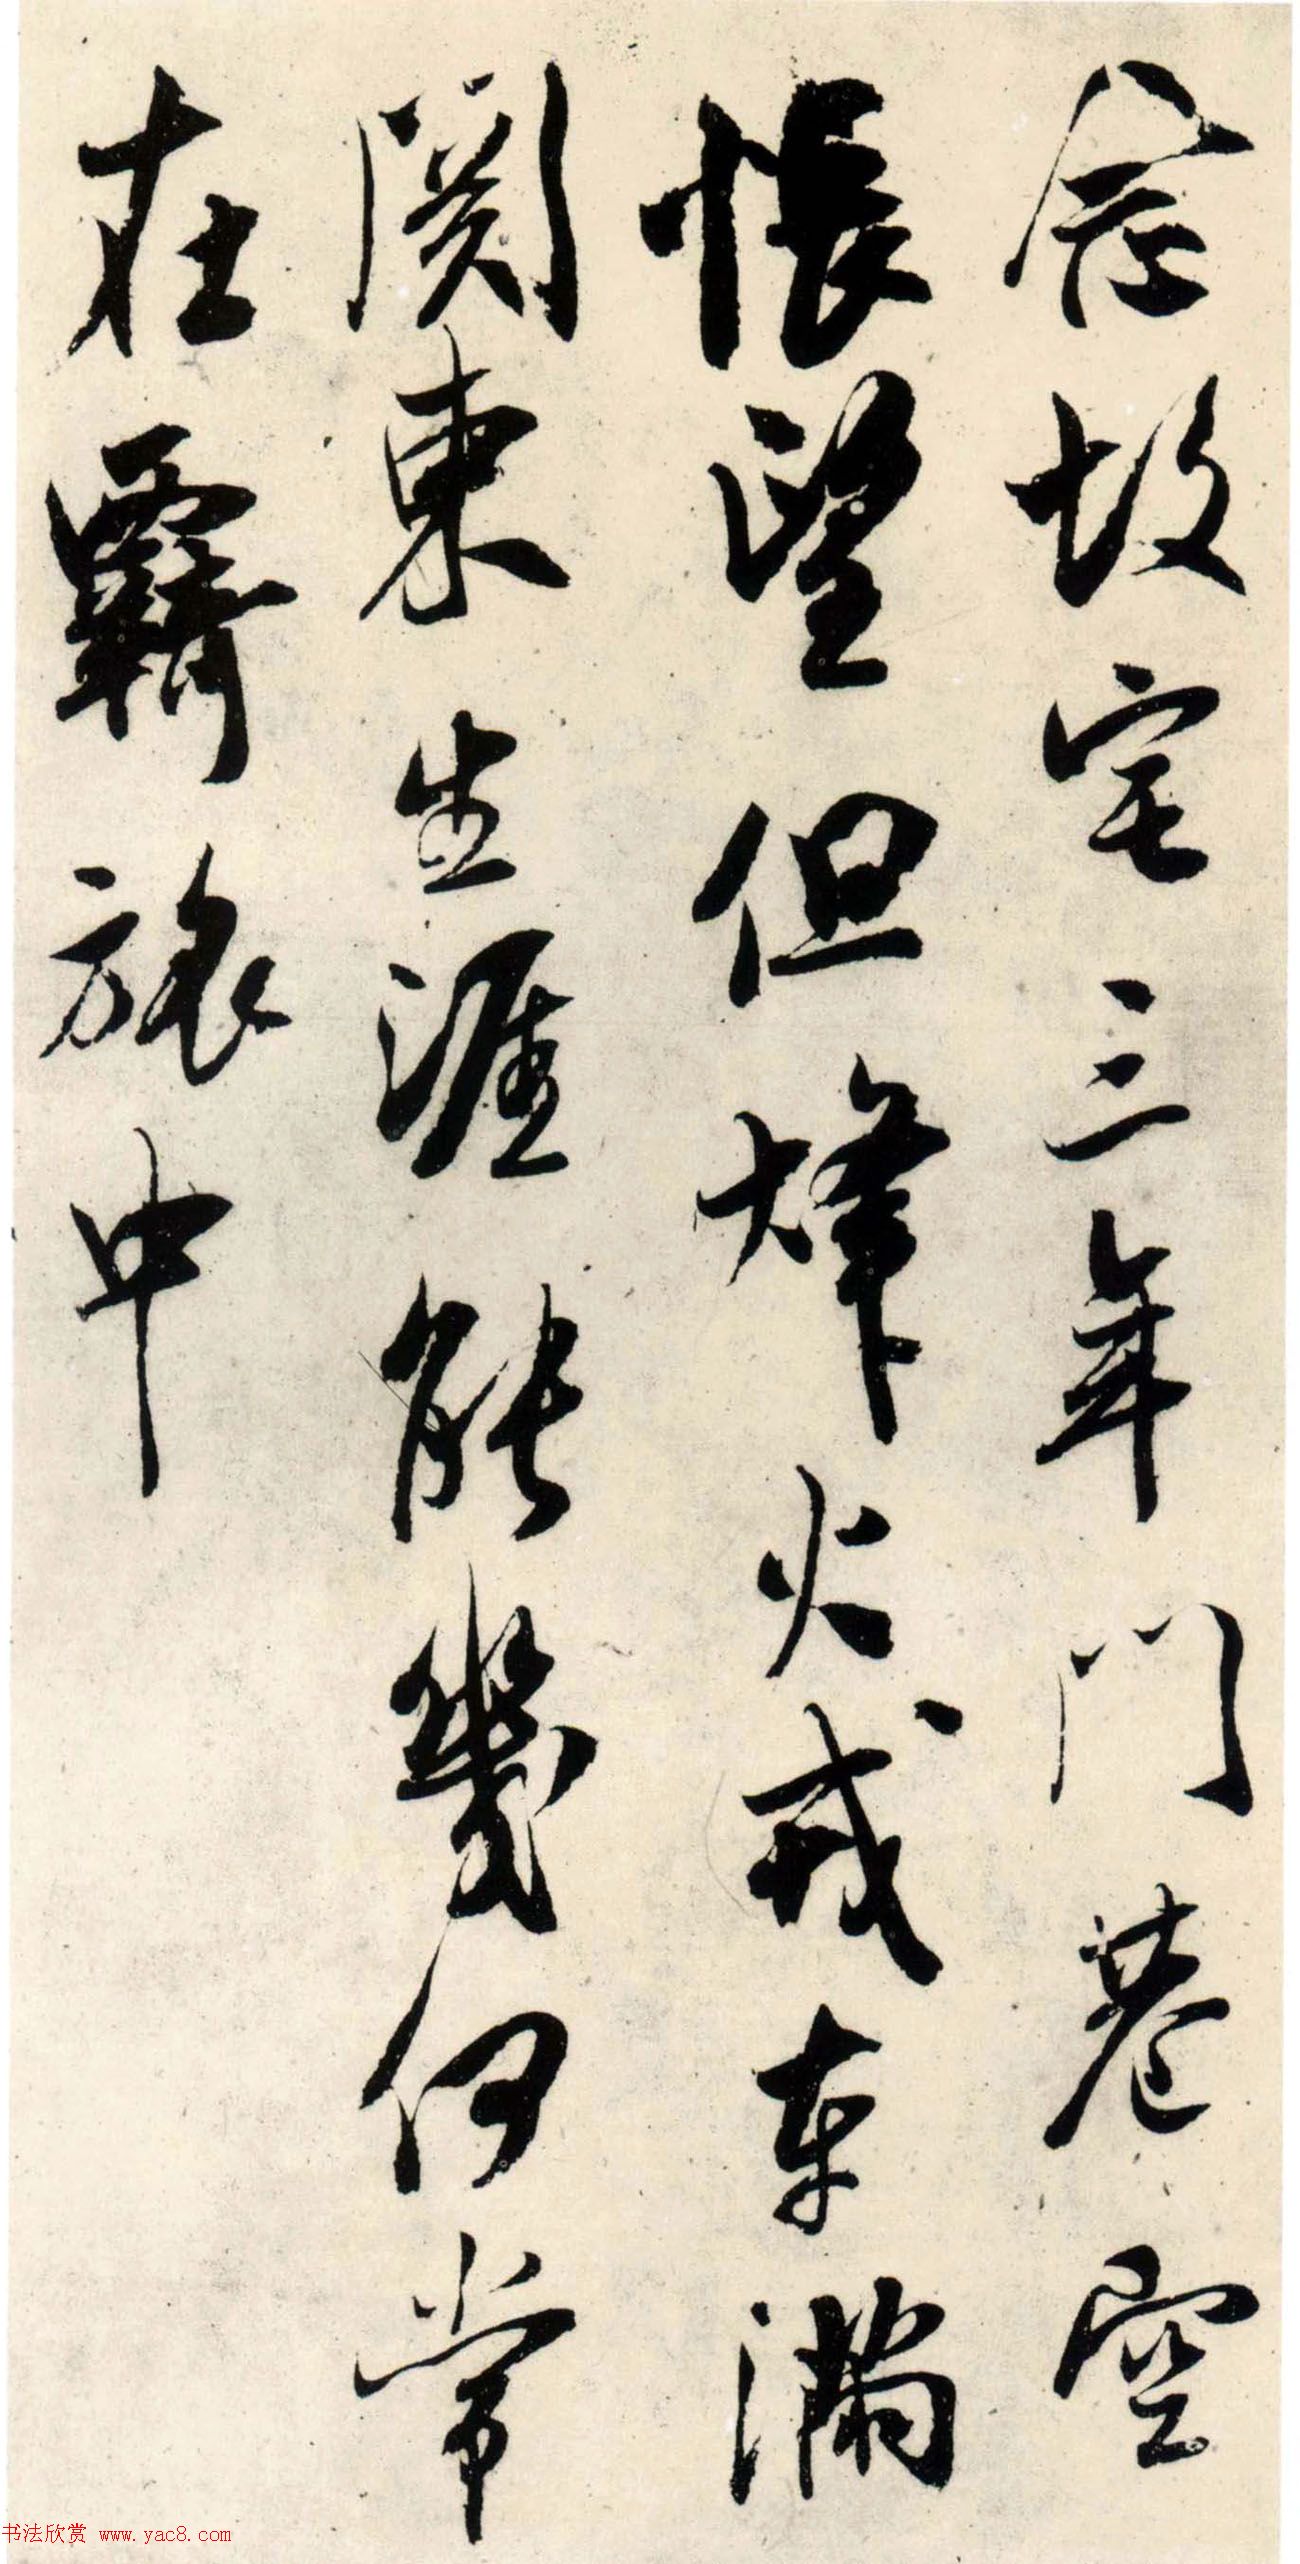 念故宅三年門巷空
悵望但烽火戎車滿
關東生涯能幾何常
在覉旅中
书法欣赏 www.yac8.com